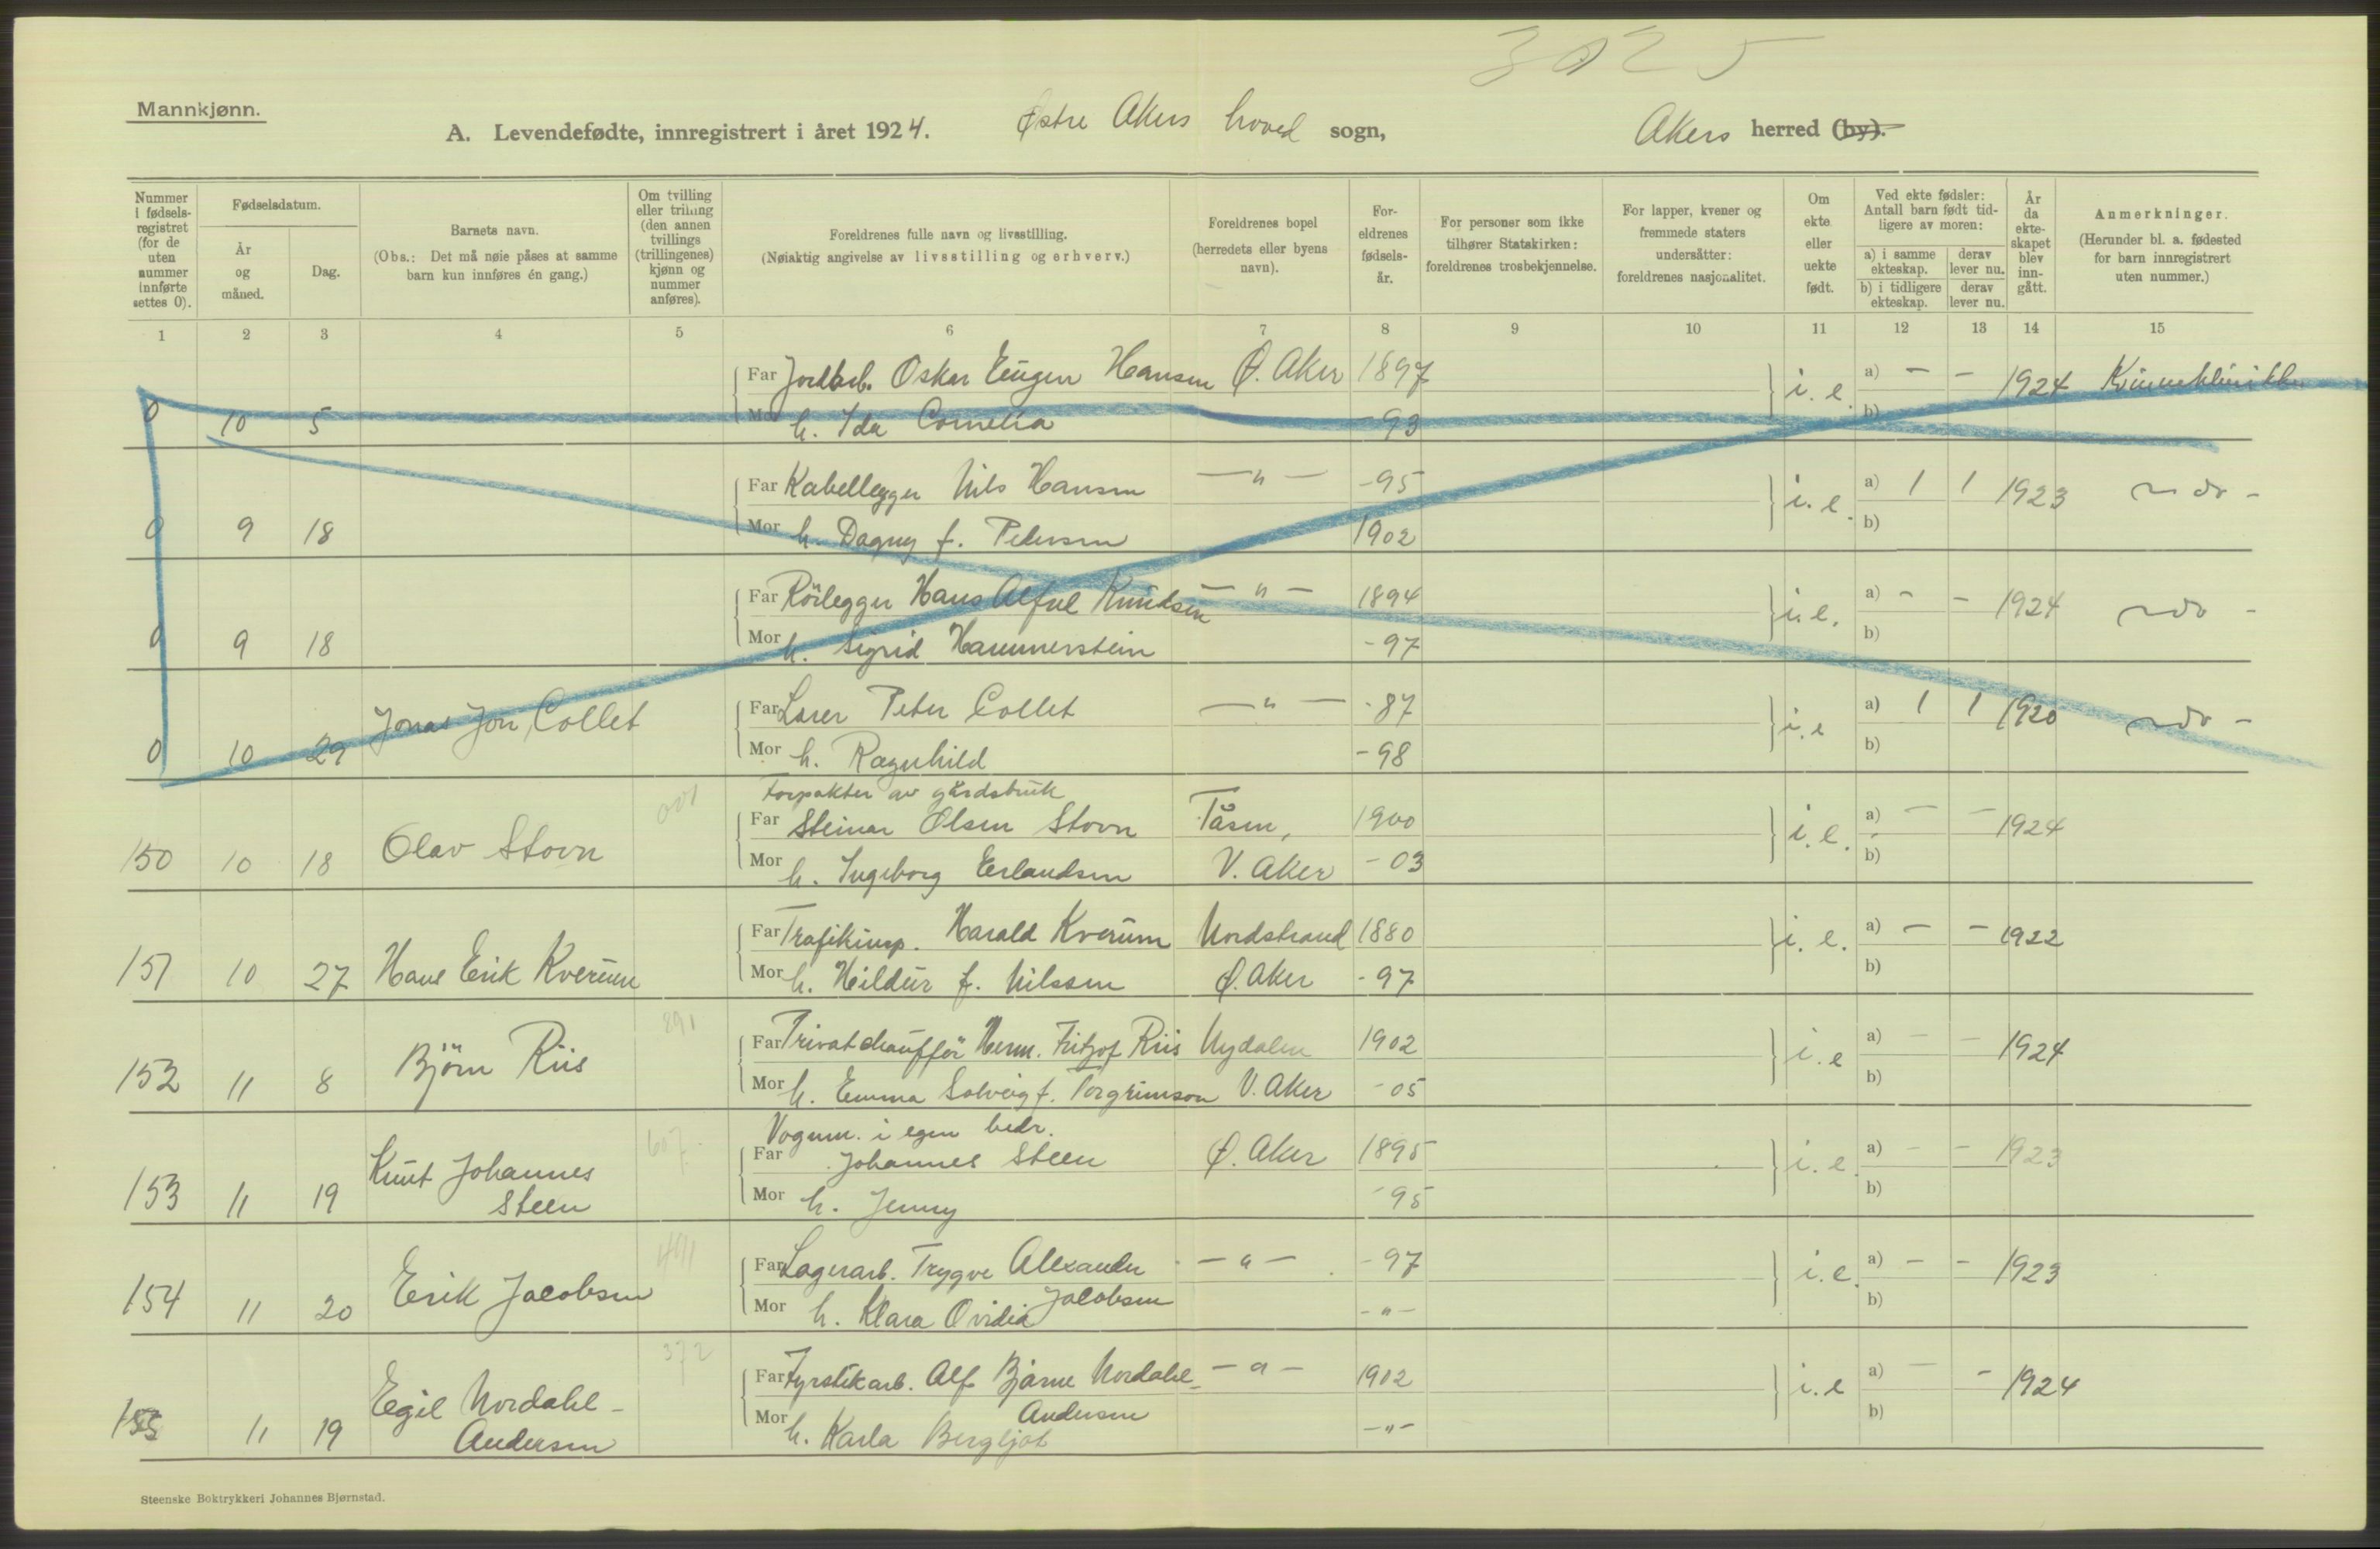 3025
Mannkjønn.
A. Levendefødte, innregistrert i året 1924. Østre Akers hoved sogn, Akers herred (by).
Nummer i fødsels-registret (for de uten nummer innførte settes 0).
Fødselsdatum.
År og måned.
Dag.
Barnets navn.
(Obs.: Det må nøie påses at samme barn kun innføres én gang.)
Om tvilling eller trilling (den annen tvillings (trillingenes) kjønn og nummer anføres).
Foreldrenes fulle navn og livsstilling.
(Nøiaktig angivelse av livsstilling og erhverv.)
Foreldrenes bopel (herredets eller byens navn).
For-eldrenes fødsels-år.
For personer som ikke tilhører Statskirken: foreldrenes trosbekjennelse.
For lapper, kvener og fremmede staters undersåtter: foreldrenes nasjonalitet.
Om ekte eller uekte født.
Ved ekte fødsler: Antall barn født tid-ligere av moren:
a) i samme ekteskap. derav lever nu.
b) i tidligere ekteskap. derav lever nu.
År da ekte-skapet blev inn-gått.
Anmerkninger.
(Herunder bl. a. fødested for barn innregistrert uten nummer.)
1 2 3 4 5 6 7 8 9 10 11 12 13 14 15
Far Jordarb. Oskar Eugen Hansen Ø. Aker 1897 i. e. a) - - 1924 Kvinneklinikken
0 10 5 Mor h. Ida Cornelia -93 b)
Far Kabellegger Nils Hansen -"- -95 i. e. a) 1 1 1923 - do -
0 9 18 Mor h. Dagny f. Pedersen 1902 b)
Far Rörlegger Hans Alfred Knudsen -"- 1894 i. e. a) - - 1924 - do -
0 9 18 Mor h. Sigrid Hammerstein -97 b)
Jonas Jon Collet Far Laser Peter Collet -"- -87 i. e a) 1 1 1920 - do -
0 10 29 Mor h. Ragnhild -98 b)
Forpakter av gårdsbruk
001 Far Steinar Olsen Stovn Tåsen, 1900 i. e. a) - - 1924
150 10 18 Olav Stovn Mor h. Ingeborg Erlandsen V. Aker -03 b)
Far Trafikinsp. Harald Kverum Nordstrand 1880 i. e. a) - - 1922
151 10 27 Hans Erik Kverum Mor h. Hildur f. Nilssen Ø. Aker -97 b)
291 Far Privatchaufför Herm. Fritjof Riis Nydalen 1902 i. e a) - - 1924
152 11 8 Björn Riis Mor h. Emma Solveig f. Torgrimson V. Aker -05 b)
Vognm. i egen bedr.
607 Far Johannes Steen Ø. Aker 1895 i. e. a) - - 1923
153 11 19 Knut Johannes Steen Mor h. Jenny -95 b)
Far Lagerarb. Trygve Alexander Jacobsen -"- -97 i. e. a) - - 1923
154 11 20 Erik Jacobsen Mor h. Klara Ovidia -"- b)
372 Far Fyrstikarb. Alf Bjarne Nordahl- Andersen -"- 1902 i. e a) - - 1924
155 11 19 Egil Nordahl- Andersen Mor h. Karla Bergljot -"- b)
Steenske Boktrykkeri Johannes Bjørnstad.